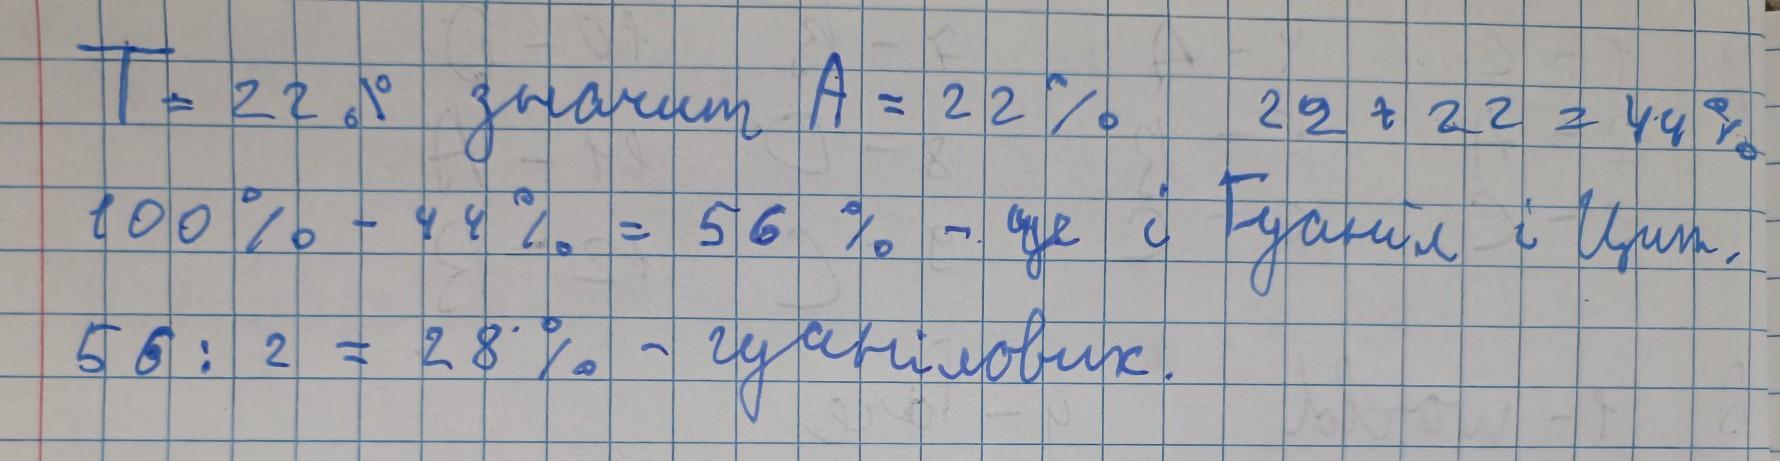 Т = 22% значит А = 22% 22 + 22 = 44%
100% - 44% = 56% - це і Гуаніл і Цит.
56 : 2 = 28% - гуанілових.